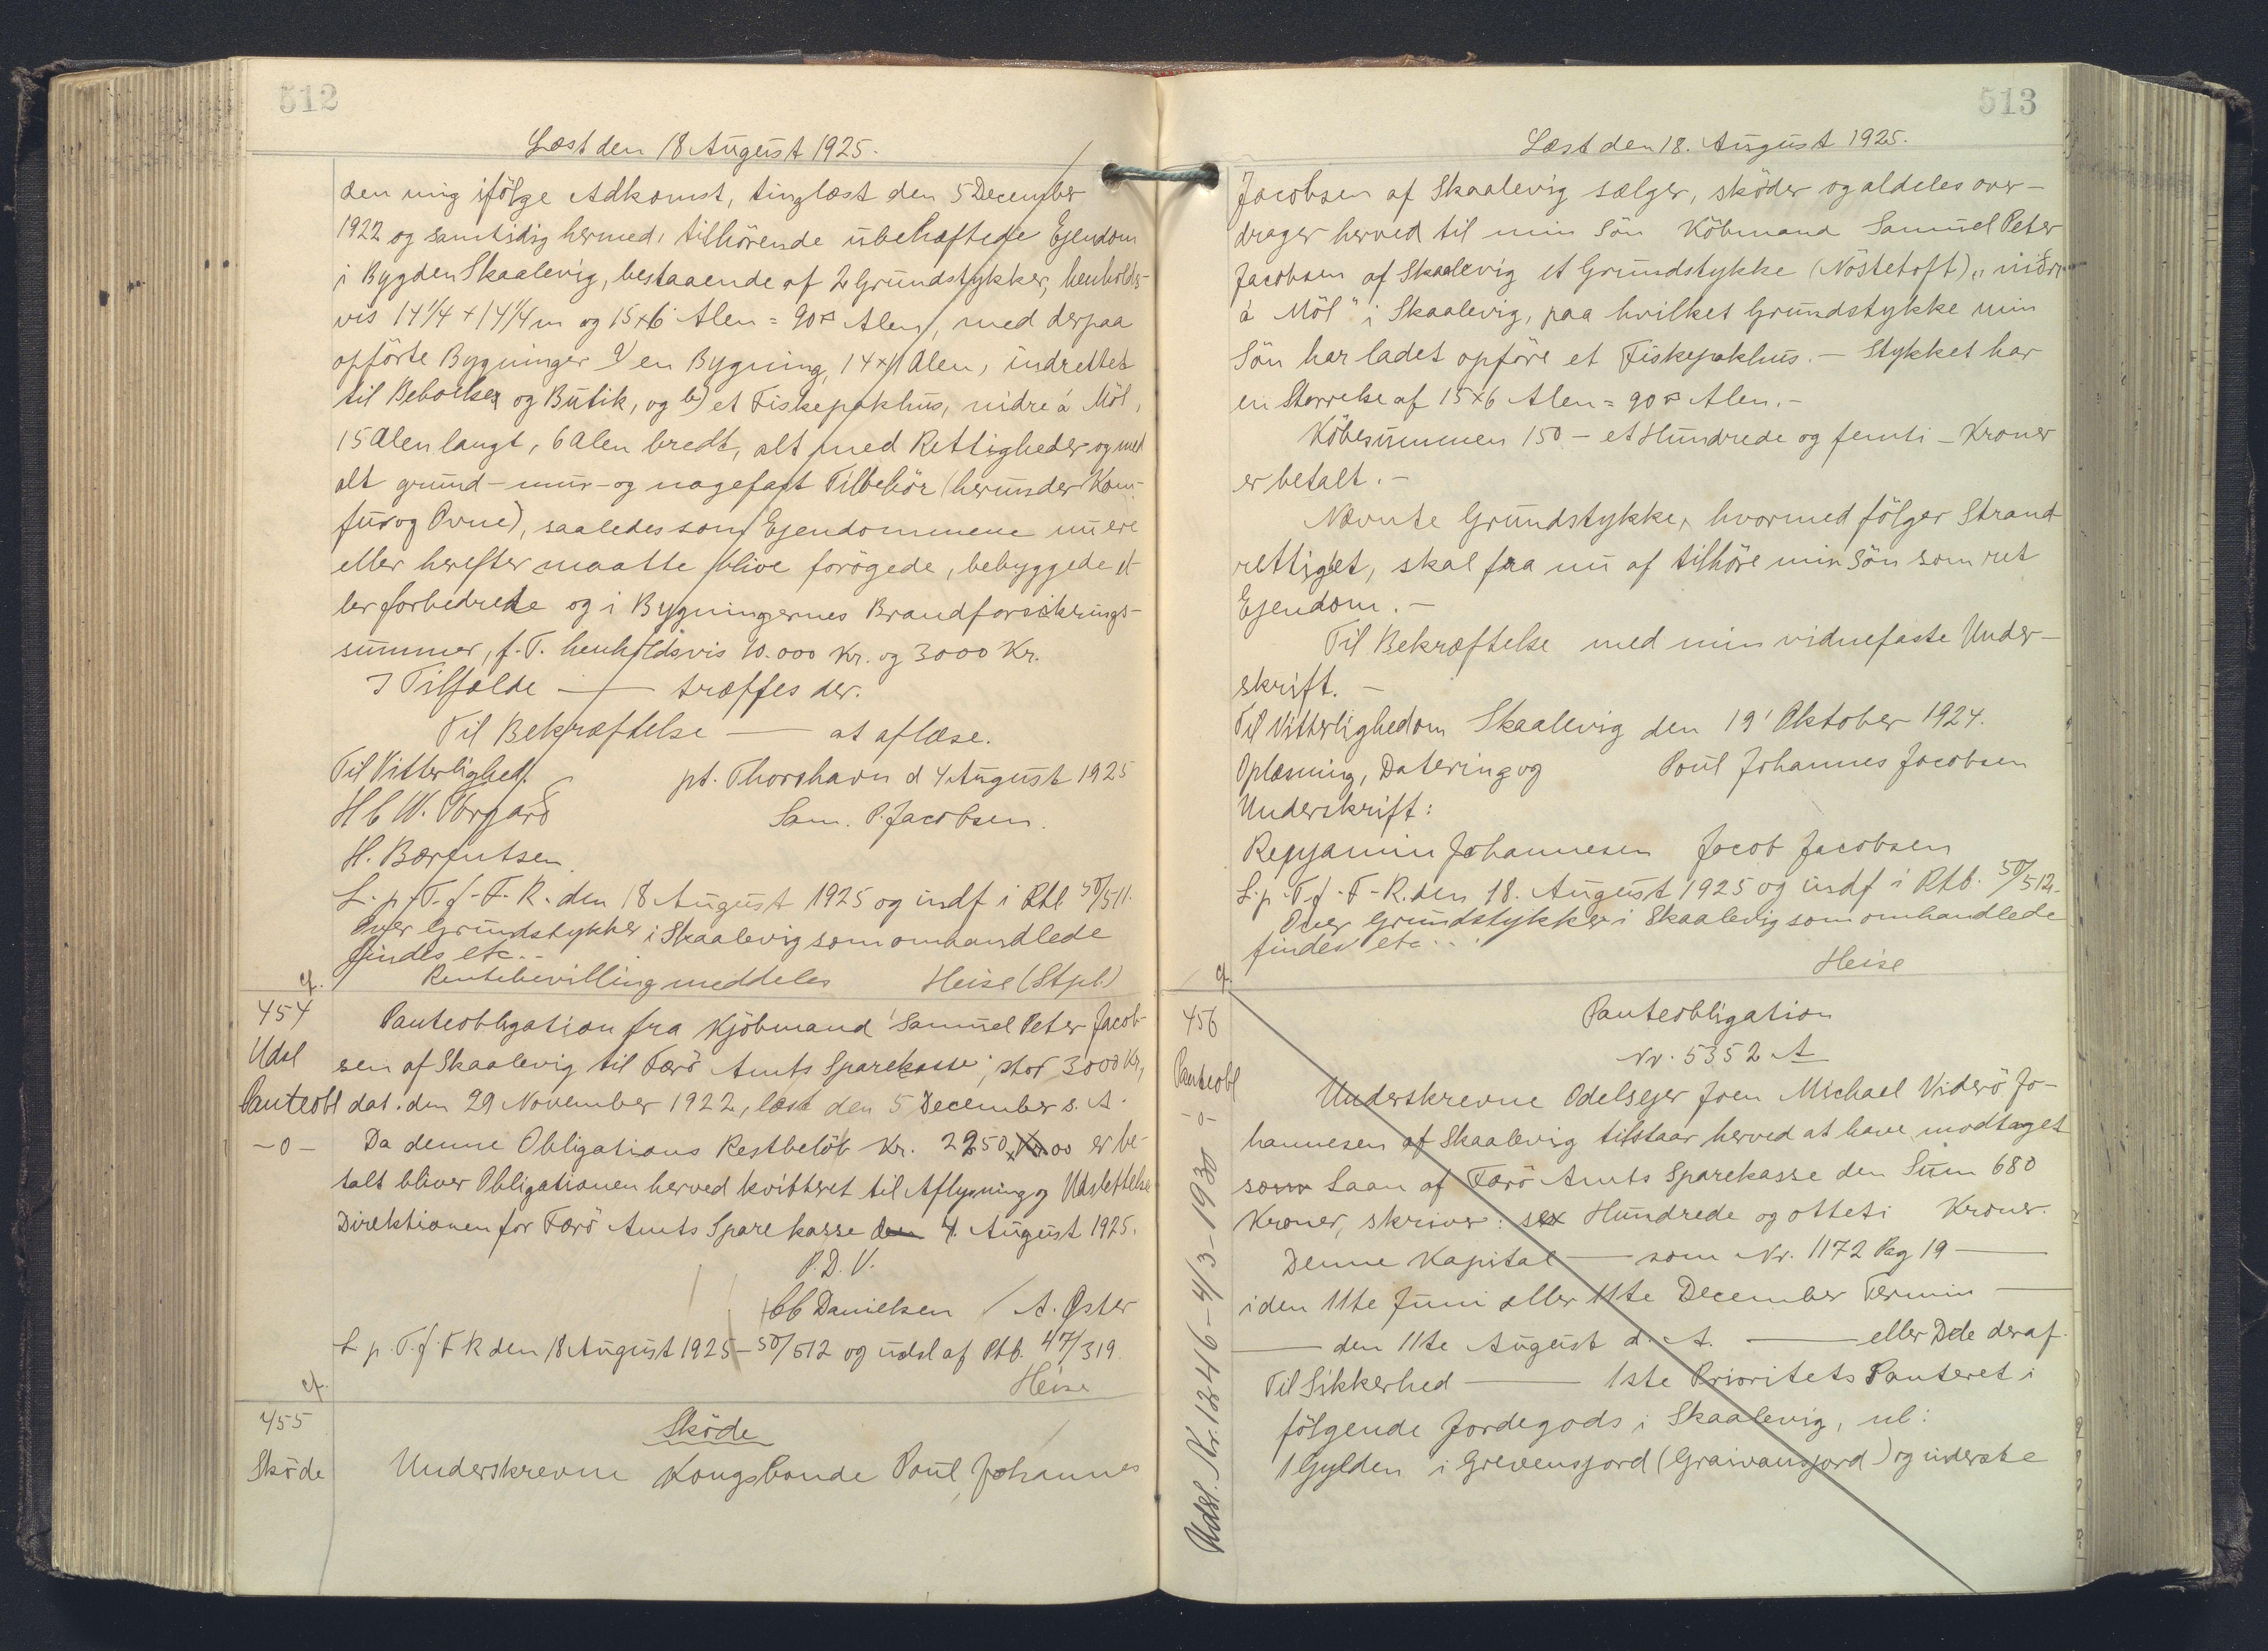 512
Læst den 18 August 1925.
den mig ifölge Adkomst, tinglæst den 5 December
1922 og samtidig hermed, tilhörende ubehæftede Ejendom
i Bygden Skaalevig, bestaaende af 2 Grundstykker, henholds-
vis 14 1/4 + 14 1/4 m og 15×6 Alen = 90 □ Alen, med derpaa
opförte Bygninger en Bygning, 14 × 11 Alen, indrettet
til Beboelse og Butik, og b) et Fiskepakhus, nidre á Möl,
15 Alen langt, 6 Alen bredt, alt med Rettigheder og med
alt grund- mur- og nagefast Tilbehör (herunder Kom-
fur og Ovne), saaledes som Ejendommene nu ere
eller herefter maatte blive forögede, bebyggede el-
ler forbedrede og i Bygningernes Brandforsikrings-
summer, f. T. henholdsvis 10.000 Kr. og 3000 Kr.
I Tilfælde — træffes der.
Til Bekræftelse — at aflæse.
Til Vitterlighed. pt. Thorshavn d 4 August 1925
H C W. Tórgarð Sam. P. Jacobsen.
H. Bærentsen
L. p. T. f. F. R. den 18 August 1925 og indf i Ptb 50/511.
Over Grundstykker i Skaalevig som omhandlede
findes etc..
Rentebevilling meddeles Heise (Stpl.)
cf.
454 Panteobligation fra Kjöbmand Samuel Peter Jacob-
Udsl sen af Skaalevig til Færö Amts Sparekasse, stor 3000 Kr,
Panteobl dat. den 29 November 1922, læst den 5 December s. A.
-o- Da denne Obligations Restbelöb Kr. 2250, 00 er be-
talt bliver Obligationen herved kvitteret til Aflysning og Udslettelse
Direktionen for Færö Amts Sparekasse den 4. August 1925.
P. D. V.
CC Danielsen / A. Øster
L p. T. f. F R den 18 August 1925 - 50/512 og udsl af Ptb. 47/319.
Heise
cf.
455 Sköde
Sköde Underskrevne Kongsbonde Poul Johannes
513
Læst den 18. August 1925.
Jacobsen af Skaalevig sælger, sköder og aldeles over-
drager herved til min Sön Köbmand Samuel Peter
Jacobsen af Skaalevig et Grundstykke (Nöstetoft) „niðri
á Möl" i Skaalevig, paa hvilket Grundstykke min
Sön har ladet opföre et Fiskepakhus. — Stykket har
en Störrelse af 15×6 Alen = 90 □ Alen. -
Köbesummen 150 - et Hundrede og femti - Kroner
er betalt. -
Nævnte Grundstykke, hvormed fölger Strand
rettighet, skal fra nu af tilhöre min Sön som ret
Ejendom. -
Til Bekræftelse med min vidnefaste Under-
skrift. -
Til Vitterlighed om Skaalevig den 19' Oktober 1924.
Oplæsning, Datering og Poul Johannes Jacobsen
Underskrift:
Benjamin Johannesen Jacob Jacobsen
L. p. T. f. F. R. den 18. August 1925 og indf i Ptb. 50/512.
Over Grundstykker i Skaalevig som omhandlede
findes etc...
Heise
cf.
456 Panteobligation
Nr. 5352 A
Panteobl Underskrevne Odelsejer Joen Michael Viderö Jo-
-o- hannesen af Skaalevig tilstaar herved at have modtaget
som Laan af Færö Amts Sparekasse den Sum 680
Kroner, skriver: sex Hundrede og otteti Kroner.
Denne Kapital — som Nr. 1172 Pag 19 —
i den 11te Juni eller 11te December Termin —
— den 11te August d. A. — eller Dele deraf.
Til Sikkerhed — 1ste Prioritets Panteret i
fölgende Jordegods i Skaalevig, nl:
1 Gylden i Grevensjord (Graivansjord) og inderste
Udsl. Nr. 1246 - 4/3 - 1930